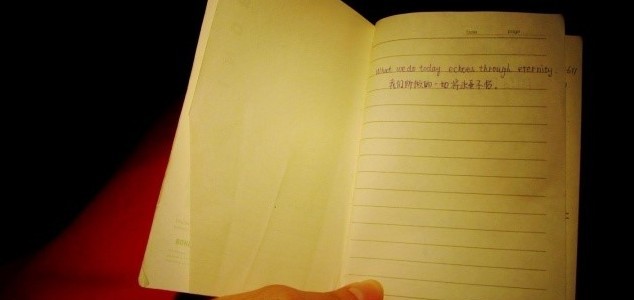 What we do today echoes through eternity.
我们所做的一切将永垂不朽。